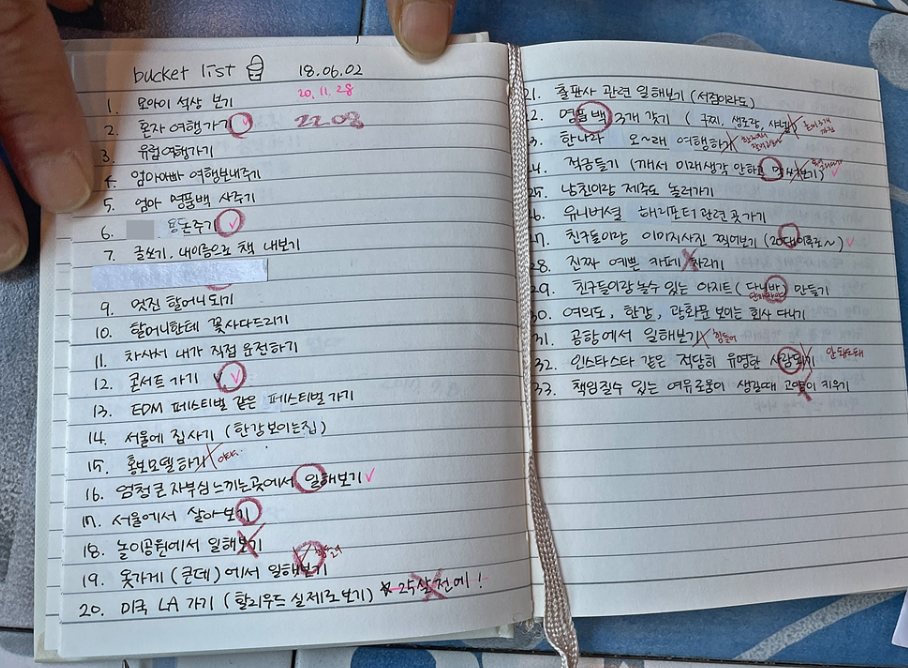 bucket list 18.06.02
20.11.28
22.08
1. 모아이 석상 보기
2. 혼자 여행가기
3. 유럽여행가기
4. 엄마아빠 여행보내주기
5. 엄마 명품백 사주기
6. 용돈주기
7. 글쓰기, 내이름으로 책 내보기
9. 멋진 할머니되기
10. 할머니한테 꽃사다드리기
11. 차사서 내가 직접 운전하기
12. 콘서트 가기
13. EDM 페스티벌 같은 페스티벌 가기
14. 서울에 집사기 (한강보이는집)
15. 홍보모델하기
16. 엄청큰 자부심느끼는곳에서 일해보기
17. 서울에서 살아보기
18. 놀이공원에서 일해보기
19. 옷가게 (큰데)에서 일해보기
20. 미국 LA 가기 (할리우드 실제로보기) 25살 전에!
21. 출판사 관련 일해보기 (서점이라도)
2. 명품백 3개 갖기 ( 구찌, 생로랑, 샤넬
3. 한나라 오~래 여행하기
4. 적금들기 (깨서 미래생각 안하고 보기)
25. 남친이랑 제주도 놀러가기
6. 유니버셜 해리포터 관련 곳가기
27. 친구들이랑 이미지사진 찍어보기 (20대이후로~)
28. 진짜 예쁜 카페 차리기
29. 친구들이랑 놀수 있는 아지트 (다나바) 만들기
30. 여의도, 한강, 광화문 보이는 회사 다니기
31. 공항에서 일해보기 힘들어
32. 인스타스타 같은 적당히 유명한 사람되기 안돼도돼
33. 책임질수 있는 여유로움이 생길때 고양이 키우기